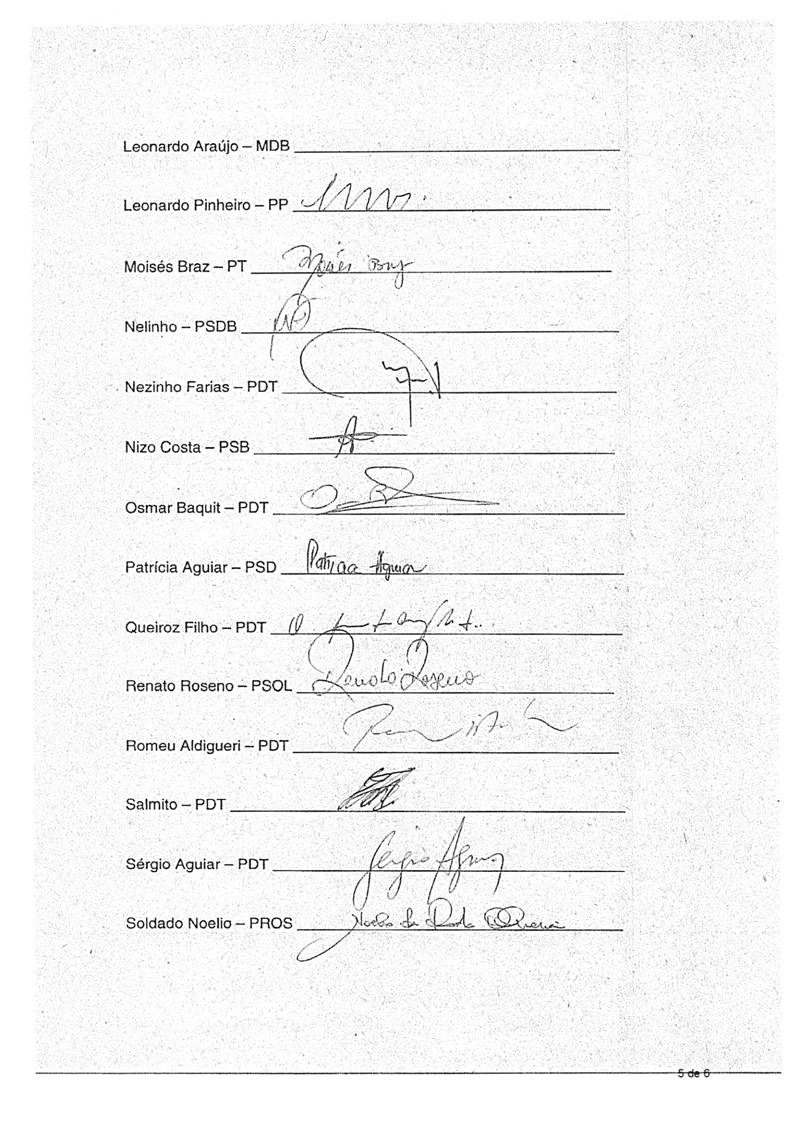 Leonardo Araújo – MDB
Leonardo Pinheiro – PP
Moisés Braz – PT Moisés Braz
Nelinho – PSDB
Nezinho Farias – PDT
Nizo Costa – PSB
Osmar Baquit – PDT
Patrícia Aguiar – PSD Patricia Aguiar
Queiroz Filho – PDT
Renato Roseno – PSOL Renato Roseno
Romeu Aldigueri – PDT
Salmito – PDT
Sérgio Aguiar – PDT Sergio Aguiar
Soldado Noelio – PROS Oliveira
5 de 6